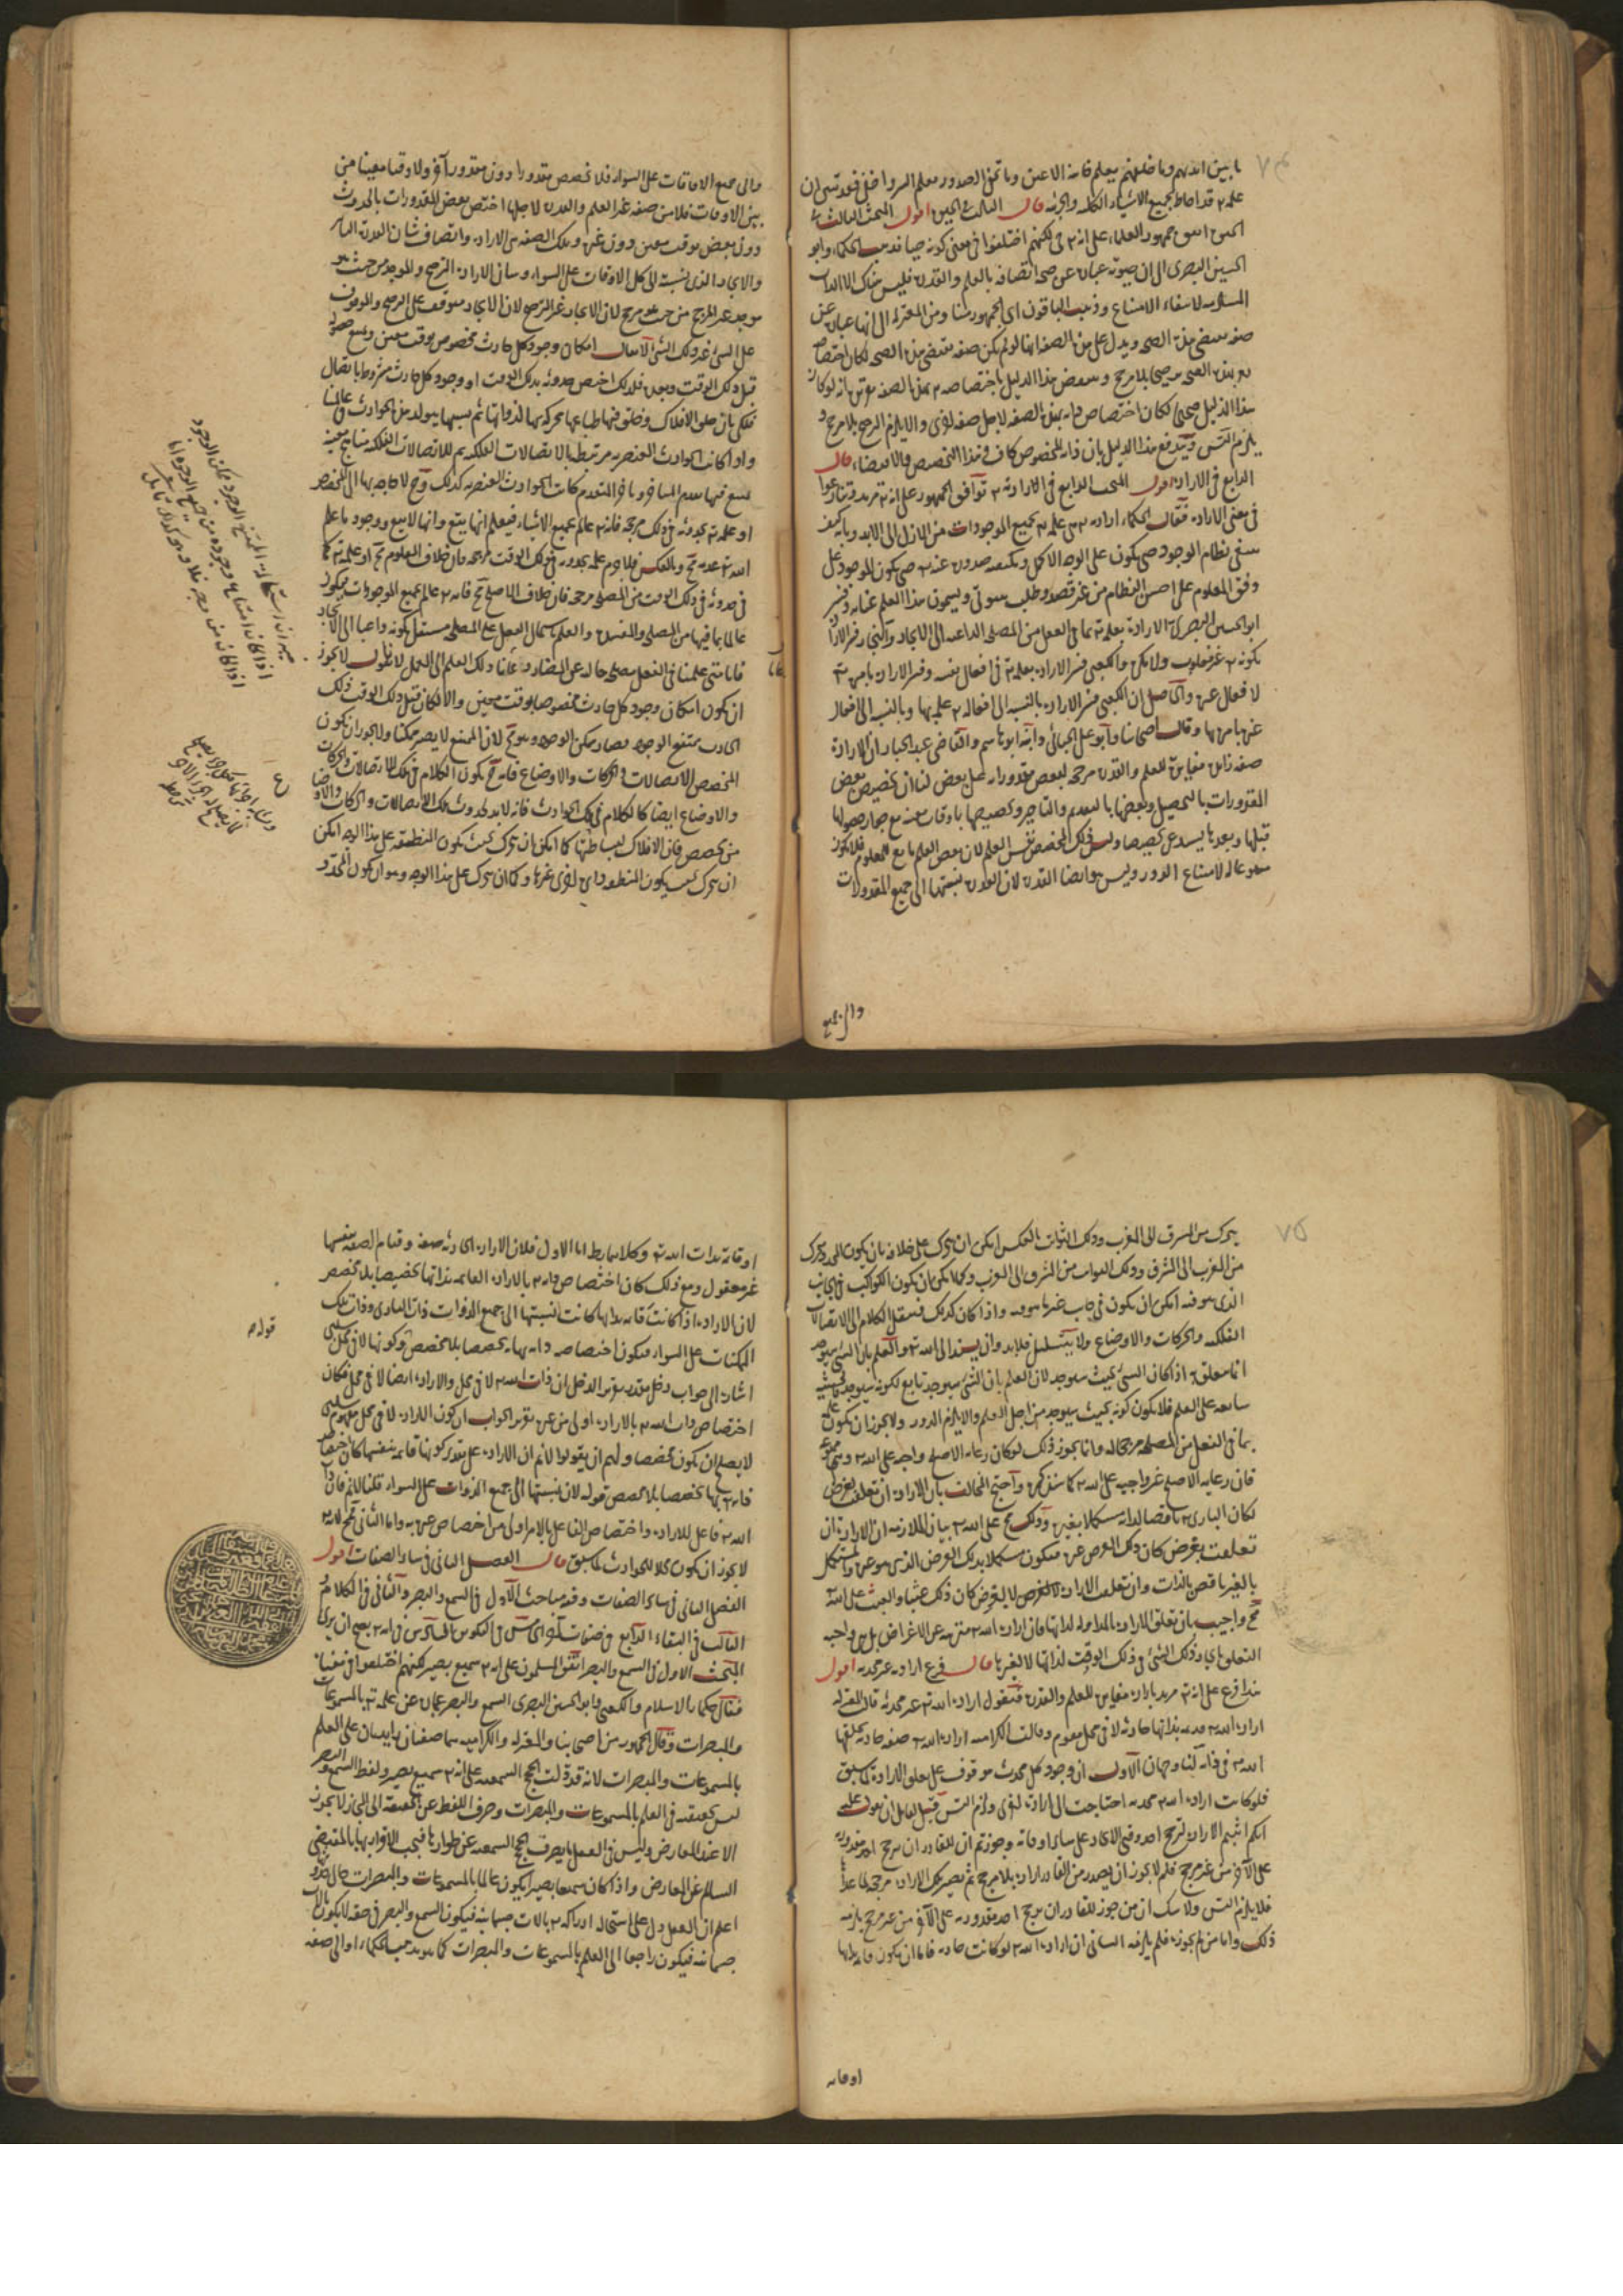 ما بين ايديهم وما خلفهم يعلم خائنة الاعين وما تخفى الصدور يعلم السر واخفى فقد تبين ان
علمه تع قد احاط بجميع الاشياء الكلية والجزئية قال الثالث فى الحيوة اقول المبحث الثالث فى
الحيوة اتفق جمهور العلماء على انه تع حى لكنهم اختلفوا فى معنى كونه حيا فذهب الحكماء وابو
الحسين البصرى الى ان حيوته عبارة عن صحة اتصافه بالعلم والقدرة فليس هناك الا الذات
المستلزمة لانتفاء الامتناع وذهب الباقون اى الجمهور منا ومن المعتزلة الى انها عبارة عن
صفة تقتضى هذه الصحة ويدل على هذه الصفة انها لو لم يكن صفة تقتضى هذه الصحة لكان اختصاصه
هذا الدليل صحيحا لكان اختصاص ذاته بهذه الصفة لاجل صفة اخرى والا يلزم الترجيح بلا مرجح و
يلزم التس ويندفع هذا الدليل بان ذاته المخصوص كاف فى هذا التخصيص والاقتضاء قال
الرابع فى الارادة اقول المبحث الرابع فى الارادة توافق الجمهور على انه تع مريد وتنازعوا
فى معنى الارادة فقال الحكماء ارادته تع هى علمه تع بجميع الموجودات من الازل الى الابد وبانه كيف
ينبغى نظام الوجود حتى يكون على الوجه الاكمل وبكيفية صدوره عنه تع حتى يكون الموجود على
وفق المعلوم على احسن النظام من غير قصد وطلب شوقى ويسمون هذا العلم عناية وفسر
ابو الحسين البصرى الارادة بعلمه تع بما فى الفعل من المصلحة الداعية الى الايجاد والنجار فسر الارادة
بكونه تع غير مغلوب ولا مكره والكعبى فسر الارادة بعلمه تع فى افعال نفسه وفسر الارادة بامره تع
لافعال غيره والحاصل ان الكعبى فسر الارادة بالنسبة الى افعاله تع علمه بها وبالنسبة الى افعال
غيره بامره بها وقال اصحابنا وابو على الجبائى وابنه ابو هاشم والقاضى عبد الجبار ان الارادة
صفة زائدة مغايرة للعلم والقدرة مرجحة لبعض مقدوراته على بعض لنا ان تخصيص بعض
المقدورات بالتحصيل وبعضها بالتقديم والتاخير وتخصيصها باوقات معينة مع جواز حصولها
قبلها وبعدها يستدعى مخصصا وليس ذلك المخصص نفس العلم لان العلم تابع للمعلوم فلا يكون
لامتناع الدور وليس هو ايضا القدرة لان القدرة نسبتها الى جميع المقدورات
والى جميع
والى جميع الاوقات على السواء فلا تخصص مقدورا دون مقدور آخر ولا وقتا معينا من
بين الاوقات فلا بد من صفة غير العلم والقدرة لاجلها اختص بعض المقدورات بالحدوث
دون بعض بوقت معين دون غيره وتلك الصفة هى الارادة وايضا فشان القدرة التاثير
والايجاد الذى نسبته الى كل الاوقات على السواء وشان الارادة الترجيح والموجد من حيث هو
موجد غير المرجح من حيث هو مرجح لان الايجاد غير الترجيح لان الايجاد موقوف على الترجيح والموقوف
على الشئ غير ذلك الشئ لا يقال امكان وجود كل حادث مخصوص بوقت معين ويمتنع حصوله
قبل ذلك الوقت وبعده فلذلك اختص حدوثه بذلك الوقت او وجود كل حادث مشروط باتصال
فلكى بان خلق الافلاك وخلق فيها طباعها محركة بها لذواتها ثم بسببها يتولد هذه الحوادث فى عالمنا
واذا كانت الحوادث العنصرية مرتبطة بالاتصالات الفلكية ثم للاتصالات الفلكية مناهج معينة
يمتنع فيها تقدم المتاخر وتاخر المتقدم كانت الحوادث العنصرية كذلك وح لا حاجة بها الى المخصص
او علمه تع بحدوثه فى ذلك مرجحه فانه تع عالم بجميع الاشياء فيعلم انها يقع وانها لا يقع ووجود ما علم
الله تع عدمه مح وبالعكس فلا جرم علمه بحدوثه فى ذلك الوقت مرجحه فان خلاف المعلوم مح او علمه تع بما
فى حدوثه فى ذلك الوقت من المصلحة مرجحه فان خلاف الاصلح مح فانه تع عالم بجميع الموجودات فيكون
عالما بما فيها من المصلحة والمفسدة والعلم باشتمال الفعل على المصلحة مستقل بكونه داعيا الى الايجاد
فانا متى علمنا فى الفعل مصلحة خالية عن المضار دعانا ذلك العلم الى العمل لانا نقول لا يجوز
ان يكون امكان وجود كل حادث مخصوصا بوقت معين والا لكان قبل ذلك الوقت ذلك
الحادث ممتنع الوجود فصار ممكن الوجود وهو مح لان الممتنع لا يصير ممكنا ولا يجوز ان يكون
المخصص الاتصالات والحركات والاوضاع فانه ح يكون الكلام فى تلك الاتصالات والحركات
والاوضاع ايضا كالكلام فى تلك الحوادث فانه لا بد لحدوث تلك الاتصالات والحركات والاوضاع
من مخصص فان الافلاك لبساطتها كما امكن ان تتحرك بحيث يكون المنطقة على هذا الوجه امكن
ان تتحرك بحيث يكون المنطقة دايرة اخرى غيرها وكما ان تتحرك على هذا الوجه وهو ان يكون المحدد
يتحرك من المشرق الى المغرب وفلك الثوابت بالعكس امكن ان يتحرك على خلافه بان يكون المحدد يتحرك
من المغرب الى المشرق وفلك الثوابت من المشرق الى المغرب وكما يمكن ان يكون الكواكب فى الجانب
الذى هو فيه امكن ان يكون فى جانب غير ما هو فيه واذا كان كذلك فينتقل الكلام الى الاتصالات
الفلكية والحركات والاوضاع ولا يتسلسل فلا بد وان يستند الى الله تع والعلم بان الشئ سيوجد
انما يتعلق به اذا كان الشئ بحيث سيوجد لان العلم بان الشئ سيوجد تابع لكونه سيوجد
سابقة على العلم فلا يكون كونه بحيث سيوجد من اجل العلم والا يلزم الدور ولا يجوز ان يكون علمه
بما فى الفعل من المصلحة مرجحا له وانما يجوز ذلك لو كان رعاية الاصلح واجبة على الله تع وهو ممنوع
فان رعاية الاصلح غير واجبة على الله تع كما سنذكره واحتج المخالف بان الارادة ان تعلقت لغرض
لكان البارى تع ناقصا لذاته مستكملا بغيره وذلك مح على الله تع بيان الملازمة ان الارادة ان
تعلقت بغرض كان ذلك الغرض غيره فيكون مستكملا بذلك الغرض الذى هو غيره والمستكمل
بالغير ناقص بالذات وان تعلقت الارادة لا لغرض كان ذلك عبثا والعبث على الله تع
مح واجيب بان تعلق الارادة بالمراد له لذاتها فان ارادة الله تع منزهة عن الاغراض بل هى واجبة
التعلق بايجاد ذلك الشئ فى ذلك الوقت لذاتها لا لغيرها قال فرع ارادته غير محدثة اقول
هذا فرع على انه تع مريد بارادة مغايرة للعلم والقدرة فنقول ارادة الله تع غير محدثة قالت المعتزلة
ارادة الله تع قائمة بذاتها حادثة لا فى محل وقالت الكرامية ارادة الله تع صفة حادثة يخلقها
الله تع فى ذاته لنا وجهان الاول ان وجود كل محدث موقوف على تعلق الارادة لما سبق
فلو كانت ارادة الله تع محدثة احتاجت الى ارادة اخرى ولزم التس قيل لقائل ان يقول عليه
انكم اثبتم الارادة لترجح احد وقتى الايجاد على سائر اوقاته وجوزتم ان للقادر ان يرجح احد مقدوريه
على الآخر من غير مرجح فلم لا يجوز ان يصدر من القادر ارادة بلا مرجح ثم يصير تلك الارادة مرجحة لما عداها
فلا يلزم التس ولا شك ان من جوز للقادر ان يرجح احد مقدوريه على الآخر من غير مرجح يلزمه
ذلك واما من لم يجوزه فلم يلزمه الثانى ان ارادة الله تع لو كانت حادثة فاما ان يكون قائمة بذاتها
او قائمة
او قائمة بذات الله تع وكلاهما باطل اما الاول فلان الارادة الحادثة صفة وقيام الصفة بنفسها
غير معقول ومع ذلك كان اختصاص ذاته تع بالارادة القائمة بذاتها تخصيصا بلا مخصص
لان الارادة اذا كانت قائمة بذاتها كانت نسبتها الى جميع الذوات ذات البارى وذات تلك
الممكنات على السواء فيكون اختصاص ذاته بها تخصيصا بلا مخصص وكونها لا فى محل سلبى
اشارة الى جواب دخل مقدر تقرير الدخل ان ذات الله تع لا فى محل والارادة ايضا لا فى محل فكان
اختصاص ذات الله تع بالارادة اولى من غيره تقرير الجواب ان كون الارادة لا فى محل مفهوم سلبى
لا يصلح ان يكون مخصصا ولهم ان يقولوا لا نم ان الارادة على تقدير كونها قائمة بنفسها كان اختصاص
ذاته تع بها تخصيصا بلا مخصص قوله لان نسبتها الى جميع الذوات على السواء قلنا لا نم فان
الله تع فاعل للارادة واختصاص الفاعل بالامر اولى من اختصاص غيره به واما الثانى فمح لانه
لا يجوز ان يكون محلا للحوادث لما سبق قال الفصل الثانى فى سائر الصفات اقول
الفصل الثانى فى سائر الصفات وفيه مباحث الاول فى السمع والبصر والثانى فى الكلام و
الثالث فى البقاء الرابع فى صفات اخر الخامس فى التكوين السادس فى انه تع يصح ان يرى
المبحث الاول فى السمع والبصر اتفق المسلمون على انه تع سميع بصير لكنهم اختلفوا فى معناه
فقال حكماء الاسلام والكعبى وابو الحسين البصرى السمع والبصر عبارة عن علمه تع بالمسموعات
والمبصرات وقال الجمهور من اصحابنا والمعتزلة والكرامية هما صفتان زايدتان على العلم
بالمسموعات والمبصرات لانه قد دلت الحجج السمعية على انه تع سميع بصير ولفظ السمع والبصر
ليس بحقيقة فى العلم بالمسموعات والمبصرات وصرف اللفظ عن الحقيقة الى المجاز لا يجوز
الا عند المعارض وليس فى العقل ما يصرف الحجج السمعية عن ظواهرها فيجب الاقرار بها بالمقتضى
السالم عن المعارض واذا كان سميعا بصيرا يكون عالما بالمسموعات والمبصرات حال حدوثها
اعلم ان العقل دل على استحالة ادراكه تع بالات جسمانية فيكون السمع والبصر فى حقه لا يكون بالات
جسمانية فيكون راجعا الى العلم بالمسموعات والمبصرات كما هو مذهب الحكماء او الى صفة
قوله